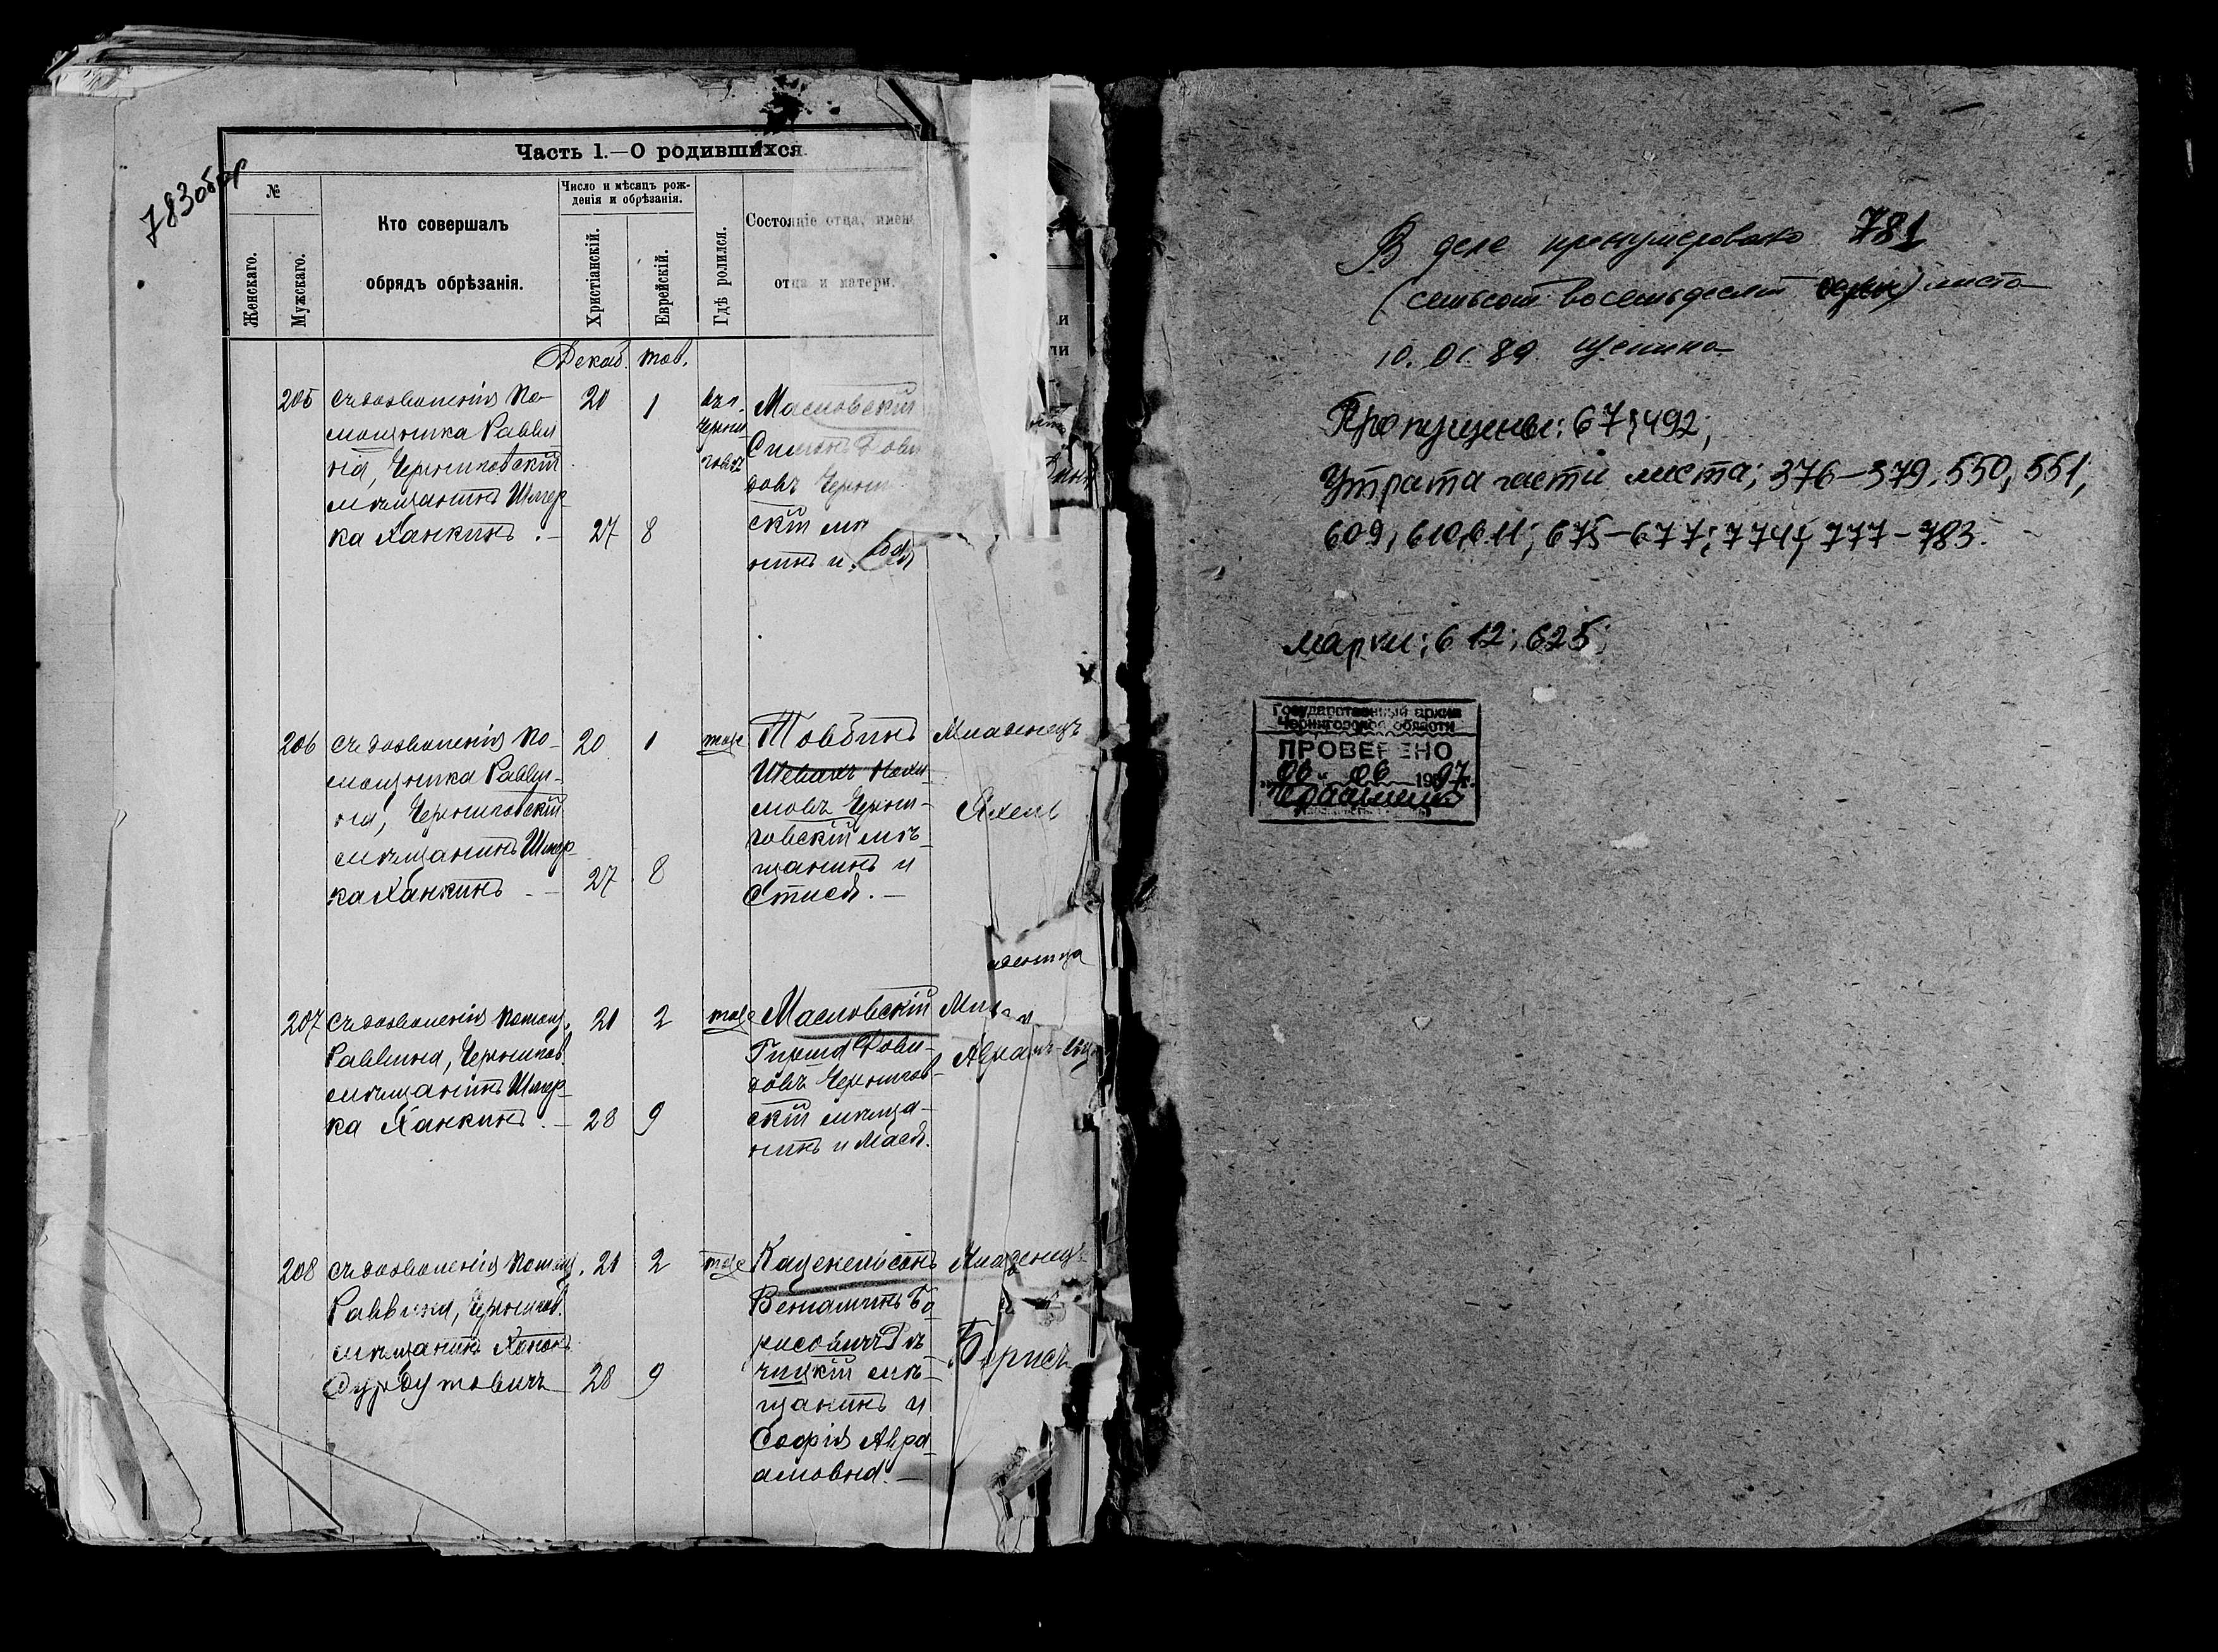 783 об
Часть 1.—О родившихся
№
Женскаго.
Мужскаго.
Кто совершалъ
обрядъ обрѣзанія.
Число и мѣсяцъ рож-
денія и обрѣзанія.
Христіанскій.
Еврейскій.
Гдѣ родился.
Состояніе отца, имена
отца и матери.
Декаб. тов.
205
Съ дозволенія по-
мощника Равви-
на, Черниговскій
мѣщанинъ Шмер-
ка Ханкинъ.—
20
27
1
8
въ г.
Черни
говѣ
Масловскій
Симонъ Дови
довъ Черни
скій мѣ
нинъ и
206
Съ дозволенія по-
мощника Равви-
на, Черниговскій
мѣщанинъ Шмер-
ка Ханкинъ
20
27
1
8
тоже
Товбинъ
Шевахъ
мовъ Черни-
говскій мѣ-
щанинъ и
Стися.—
Младенецъ
207
Съ дозволенія помощ.
Раввина, Чернигов.
мѣщанинъ Шмер-
ка Ханкинъ.—
21
28
2
9
тоже
Масловскій
Гирша Дови-
довъ Чернигов-
скій мѣща-
нинъ и Мася.
208
Съ дозволенія помощ.
Раввина, Чернигов.
мѣщанинъ Хононъ
21
28
2
9
тоже
Каценельсонъ
Веніаминъ Бо
рисовичъ Рѣ-
чицкій мѣ-
щанинъ и
Софія Авра-
амовна.—
Младенецъ
Борисъ
В деле пронумеровано 781
(семьсот восемьдесят один) листа
10.01.89
Пропущены: 67; 492;
Утрата части листа; 376–379, 550, 551;
609, 610, 611; 675–677; 774; 777–783.
марки; 612; 625;
Государственный архив
Черниговской области
ПРОВЕРЕНО
"06" 06 1997 г.